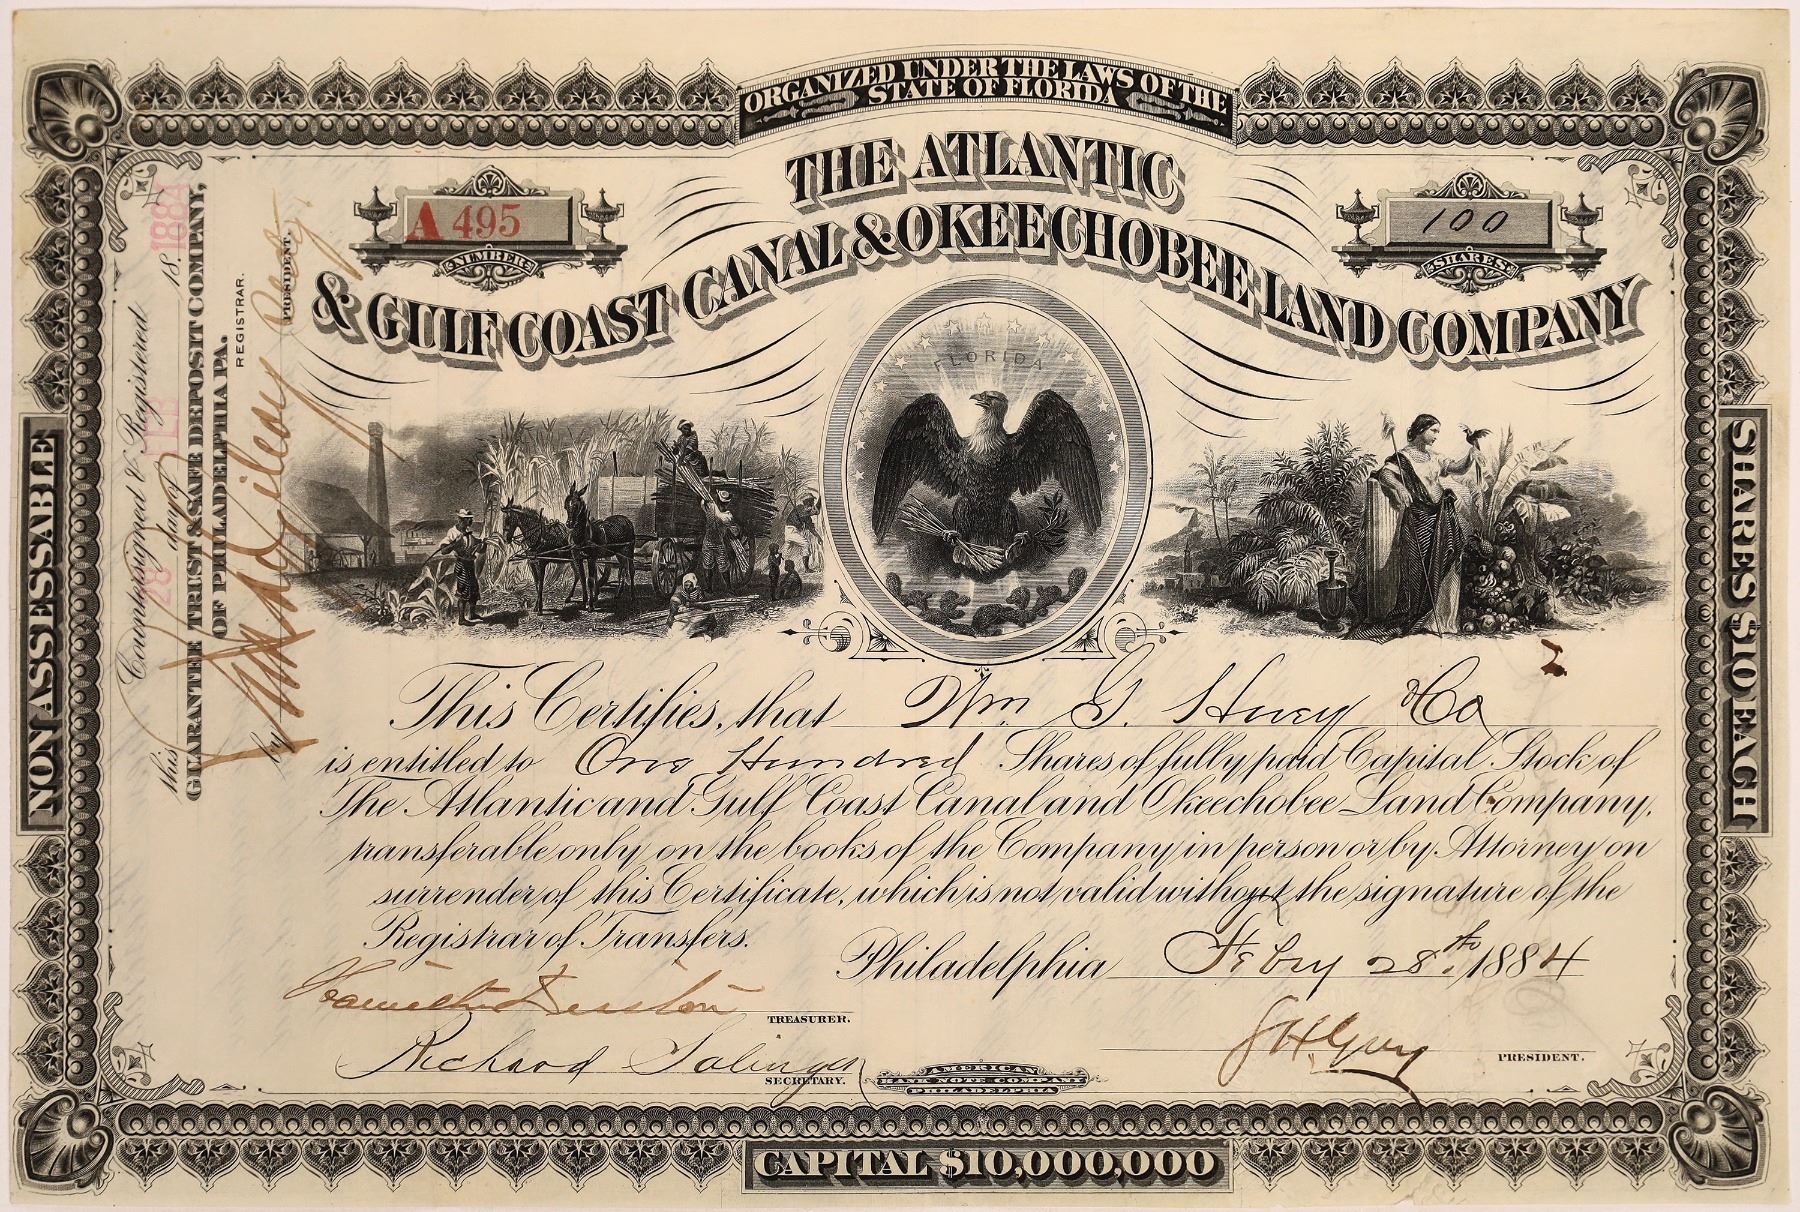 ORGANIZED UNDER THE LAWS OF THE
STATE OF FLORIDA
THE ATLANTIC
& GULF COAST CANAL & OKEECHOBEE LAND COMPANY
A 495
NUMBER
100
SHARES
FLORIDA
NON ASSESSABLE
SHARES $10 EACH
Countersigned & Registered
this 28 day of FEB 18 1884
GUARANTEE TRUST & SAFE DEPOSIT COMPANY,
OF PHILADELPHIA PA.
REGISTRAR.
by
PRESIDENT.
This Certifies, that Wm. G. Huey & Co
is entitled to One Hundred Shares of fully paid Capital Stock of
The Atlantic and Gulf Coast Canal and Okeechobee Land Company,
transferable only on the books of the Company in person or by Attorney on
surrender of this Certificate, which is not valid without the signature of the
Registrar of Transfers.
Philadelphia Feby 28th, 1884
TREASURER.
Richard Salinger
SECRETARY.
AMERICAN
BANK NOTE COMPANY
PHILADELPHIA
PRESIDENT.
CAPITAL $10,000,000